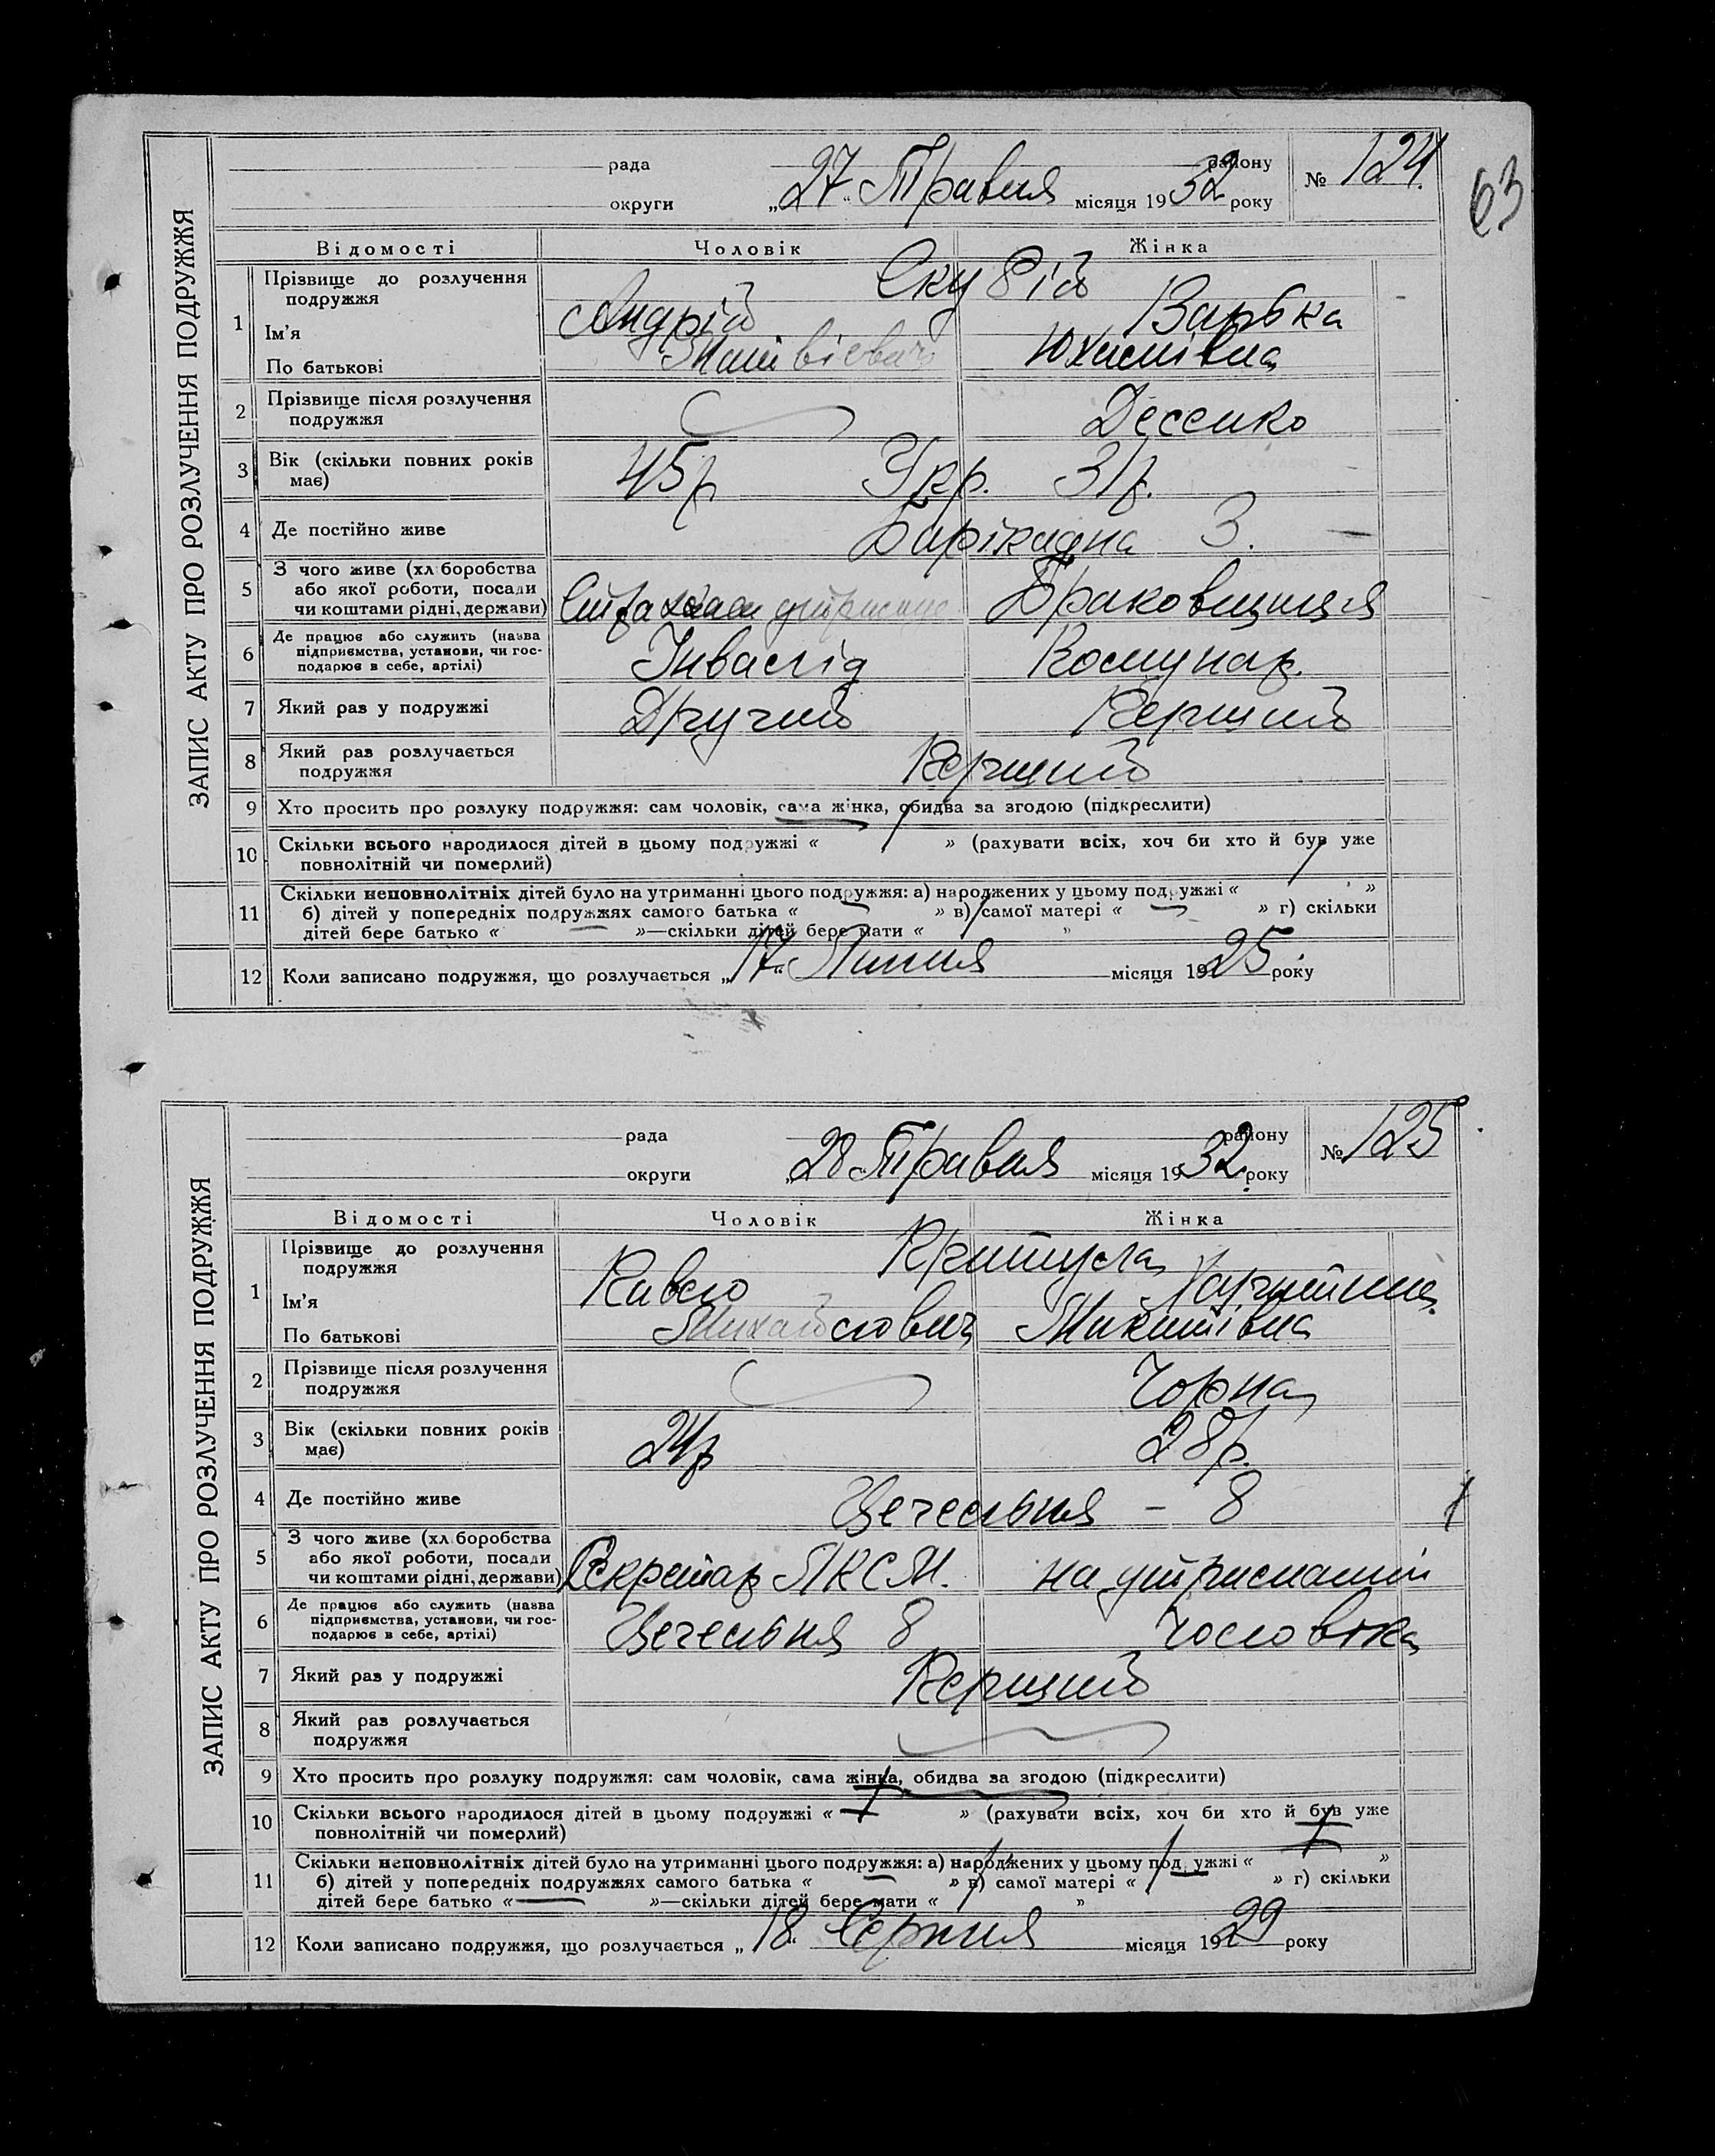 63
ЗАПИС АКТУ ПРО РОЗЛУЧЕННЯ ПОДРУЖЖЯ
рада району № 124
округи „27“ Травня місяця 1932 року
Відомості Чоловік Жінка
1 Прізвище до розлучення подружжя
Ім'я Андрій Варвка
По батькові Юхимівна
2 Прізвище після розлучення
подружжя
3 Вік (скільки повних років
має) 45р Укр. 31р.
4 Де постійно живе Барікадна 3. —
5 З чого живе (хліборобства
або якої роботи, посади
чи коштами рідні, держави) Браковщиця
6 Де працює або служить (назва
підприємства, установи, чи гос-
подарює в себе, артілі) Інвалід Комунар.
7 Який раз у подружжі Другий Перший
8 Який раз розлучається
подружжя Перший
9 Хто просить про розлуку подружжя: сам чоловік, сама жінка, обидва за згодою (підкреслити)
10 Скільки всього народилося дітей в цьому подружжі « » (рахувати всіх, хоч би хто й був уже
повнолітній чи померлий)
11 Скільки неповнолітніх дітей було на утриманні цього подружжя: а) народжених у цьому подружжі « »
б) дітей у попередніх подружжях самого батька « » в) самої матері « » г) скільки
дітей бере батько « »—скільки дітей бере мати « »
12 Коли записано подружжя, що розлучається „17“ Липня місяця 1925 року
ЗАПИС АКТУ ПРО РОЗЛУЧЕННЯ ПОДРУЖЖЯ
рада району № 125
округи „28 Травня місяця 1932 року
Відомості Чоловік Жінка
1 Прізвище до розлучення
подружжя
Ім'я Павло Харитина
По батькові Михайлович Микитівна
2 Прізвище після розлучення
подружжя Чорна
3 Вік (скільки повних років
має) 24р 28р.
4 Де постійно живе – 8
5 З чого живе (хліборобства
або якої роботи, посади
чи коштами рідні, держави) Секретар ЛКСМ. на утриманні
6 Де працює або служить (назва
підприємства, установи, чи гос-
подарює в себе, артілі) 8 чоловіка
7 Який раз у подружжі Перший
8 Який раз розлучається
подружжя
9 Хто просить про розлуку подружжя: сам чоловік, сама жінка, обидва за згодою (підкреслити)
10 Скільки всього народилося дітей в цьому подружжі « » (рахувати всіх, хоч би хто й був уже
повнолітній чи померлий)
11 Скільки неповнолітніх дітей було на утриманні цього подружжя: а) народжених у цьому подружжі « »
б) дітей у попередніх подружжях самого батька « » в) самої матері « » г) скільки
дітей бере батько « »—скільки дітей бере мати « »
12 Коли записано подружжя, що розлучається „18“ Серпня місяця 1929 року